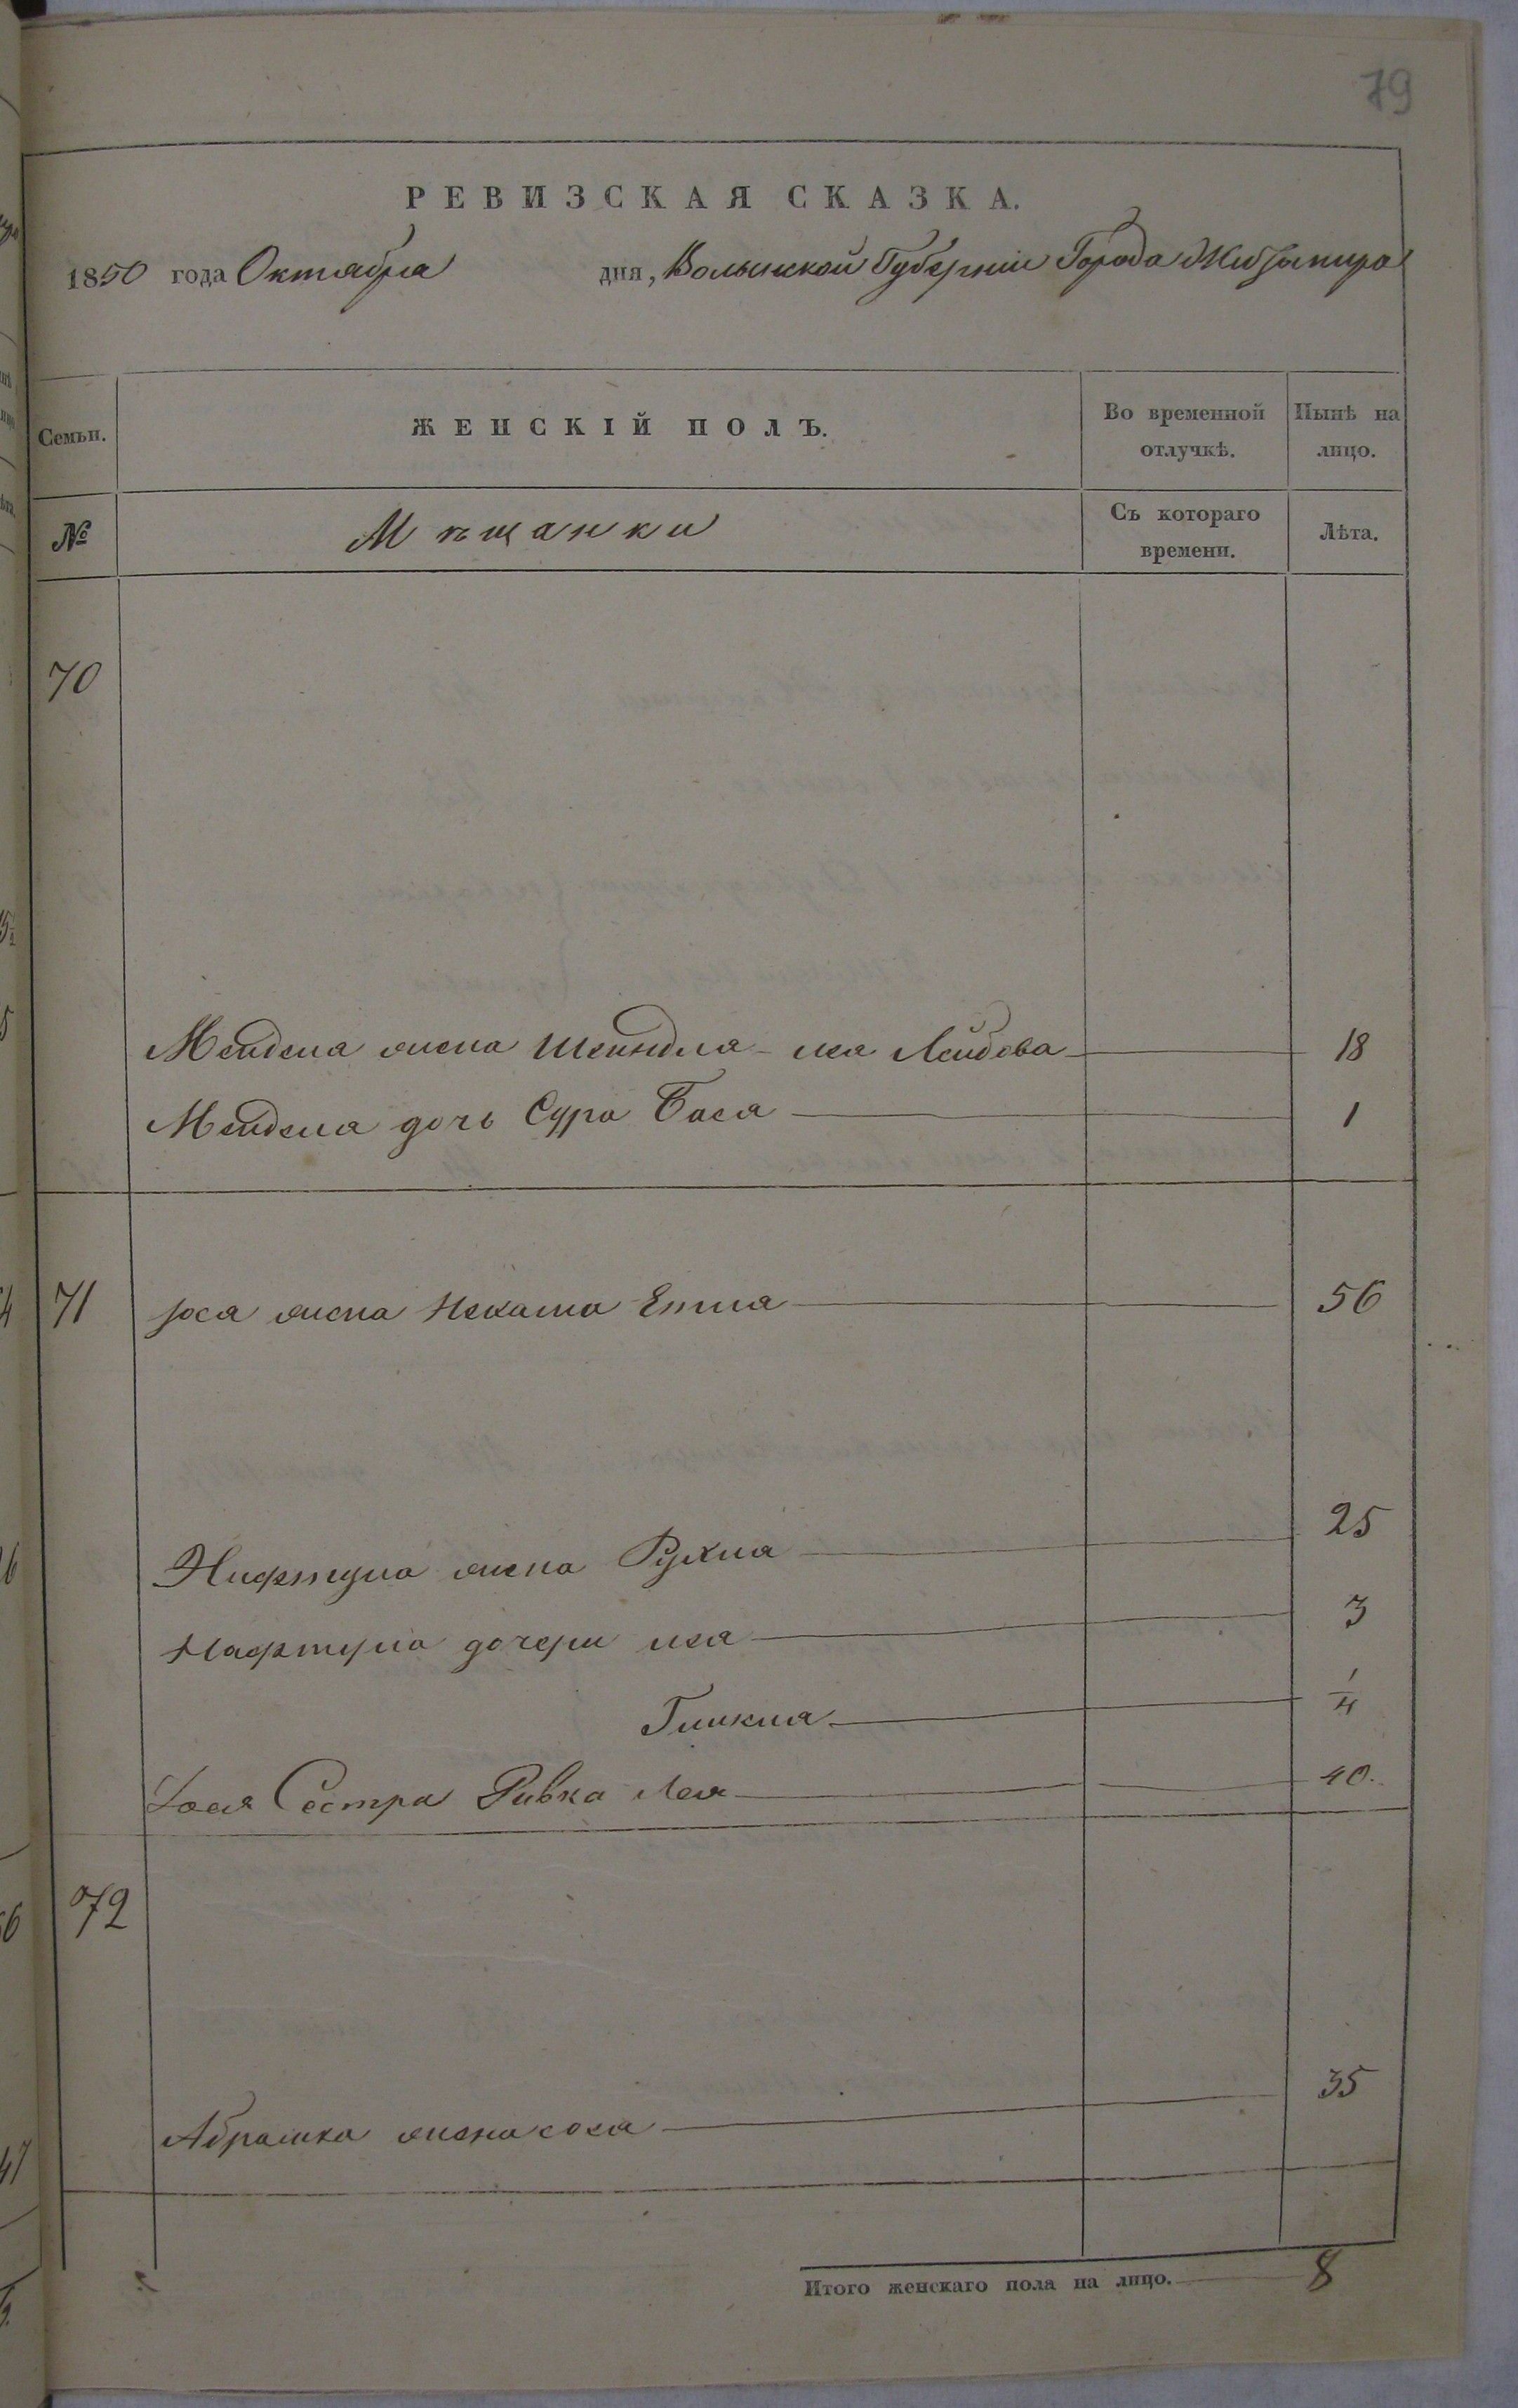 79
РЕВИЗСКАЯ СКАЗКА.
1850 года Октября дня, Волынской Губерніи Города Житомира
Семьи. ЖЕНСКІЙ ПОЛЪ. Во временной отлучкѣ. Нынѣ на лицо.
№ Мѣщанки Съ котораго времени. Лѣта.
70
Мендела жена Шейндля лея Лейбова 18
Мендела дочь Сура Бася 1
71 Іося жена Нехама Етля 56
Нафтула жена Рухля 25
Нафтула дочери лея 3
1/4
Іося Сестра Ривка Лея 40.
72
Абрамка жена сося 35
Итого женскаго пола на лицо. 8